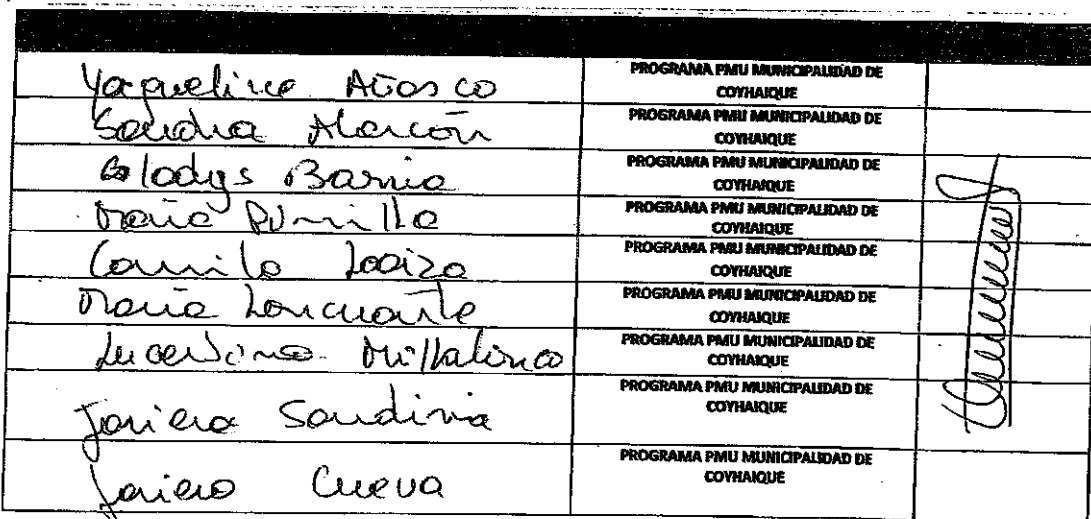 Yaqueline Atiasco
PROGRAMA PMU MUNICIPALIDAD DE
COYHAIQUE
Sandra Alarcón
PROGRAMA PMU MUNICIPALIDAD DE
COYHAIQUE
Gladys Barria
PROGRAMA PMU MUNICIPALIDAD DE
COYHAIQUE
Maria
PROGRAMA PMU MUNICIPALIDAD DE
COYHAIQUE
Camila Loaiza
PROGRAMA PMU MUNICIPALIDAD DE
COYHAIQUE
Maria Loncuante
PROGRAMA PMU MUNICIPALIDAD DE
COYHAIQUE
Millalonco
PROGRAMA PMU MUNICIPALIDAD DE
COYHAIQUE
Javiera
PROGRAMA PMU MUNICIPALIDAD DE
COYHAIQUE
Javiera Cueva
PROGRAMA PMU MUNICIPALIDAD DE
COYHAIQUE